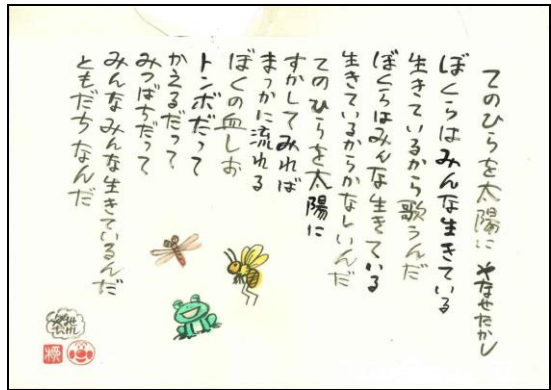 てのひらを太陽に やなせたかし
ぼくらはみんな生きている
生きているから歌うんだ
ぼくらはみんな生きている
生きているからかなしいんだ
てのひらを太陽に
すかしてみれば
まっかに流れる
ぼくの血しお
トンボだって
かえるだって
みつばちだって
みんなみんな生きているんだ
ともだちなんだ